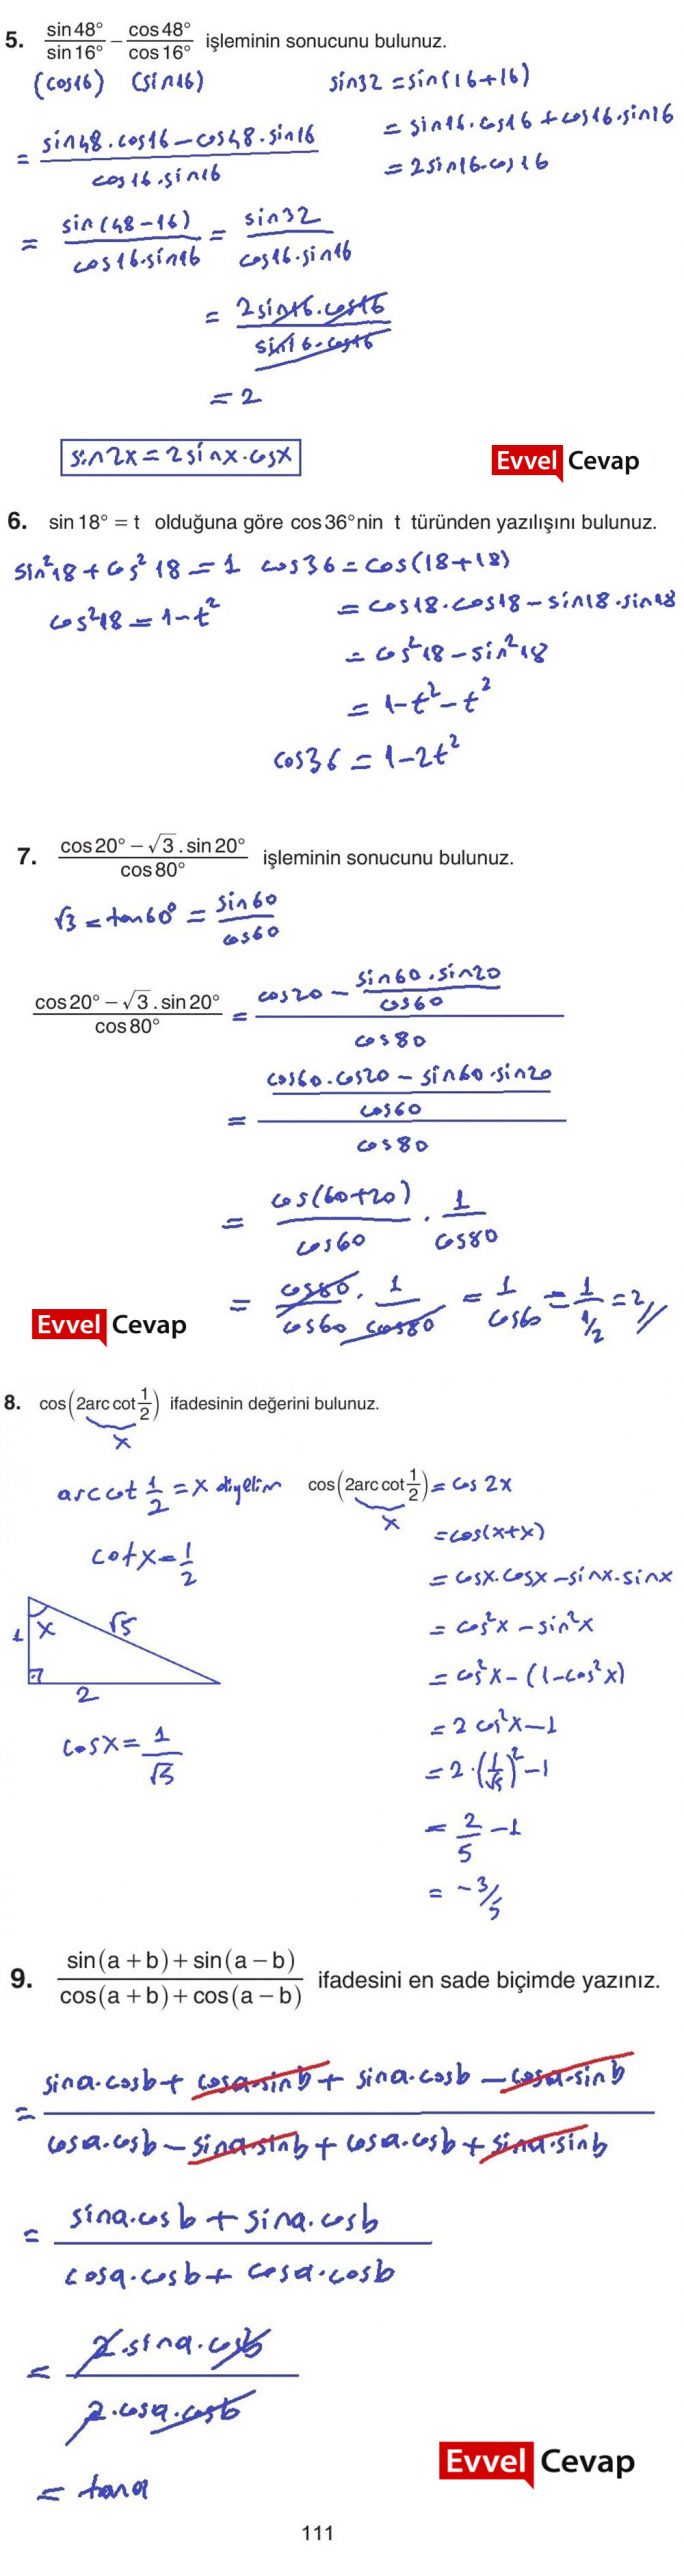 5. sin48°/sin16° − cos48°/cos16° işleminin sonucunu bulunuz.
(cos16) (sin16)
sin32 = sin(16+16)
= sin16.cos16 + cos16.sin16
= 2sin16.cos16
= (sin48.cos16 − cos48.sin16)/(cos16.sin16)
= sin(48−16)/(cos16.sin16) = sin32/(cos16.sin16)
= (2sin16.cos16)/(sin16.cos16)
= 2
sin2x = 2sinx.cosx
Evvel Cevap
6. sin18° = t olduğuna göre cos36°nin t türünden yazılışını bulunuz.
sin²18 + cos²18 = 1
cos²18 = 1−t²
cos36 = cos(18+18)
= cos18.cos18 − sin18.sin18
= cos²18 − sin²18
= 1−t²−t²
cos36 = 1−2t²
7. (cos20° − √3.sin20°)/cos80° işleminin sonucunu bulunuz.
√3 = tan60° = sin60/cos60
(cos20° − √3.sin20°)/cos80° = (cos20 − (sin60.sin20)/cos60)/cos80
= ((cos60.cos20 − sin60.sin20)/cos60)/cos80
= cos(60+20)/cos60 . 1/cos80
= cos80/cos60 . 1/cos80 = 1/cos60 = 1/(1/2) = 2//
Evvel Cevap
8. cos(2arc cot 1/2) ifadesinin değerini bulunuz.
x
arccot 1/2 = x diyelim
cotx = 1/2
1 x √5
2
cosx = 1/√5
cos(2arc cot 1/2) = cos 2x
x
= cos(x+x)
= cosx.cosx − sinx.sinx
= cos²x − sin²x
= cos²x − (1−cos²x)
= 2cos²x−1
= 2.(1/√5)²−1
= 2/5 −1
= −3/5
9. (sin(a+b)+sin(a−b))/(cos(a+b)+cos(a−b)) ifadesini en sade biçimde yazınız.
= (sina.cosb + cosa.sinb + sina.cosb − cosa.sinb)/(cosa.cosb − sina.sinb + cosa.cosb + sina.sinb)
= (sina.cosb + sina.cosb)/(cosa.cosb + cosa.cosb)
= (2.sina.cosb)/(2.cosa.cosb)
= tana
Evvel Cevap
111